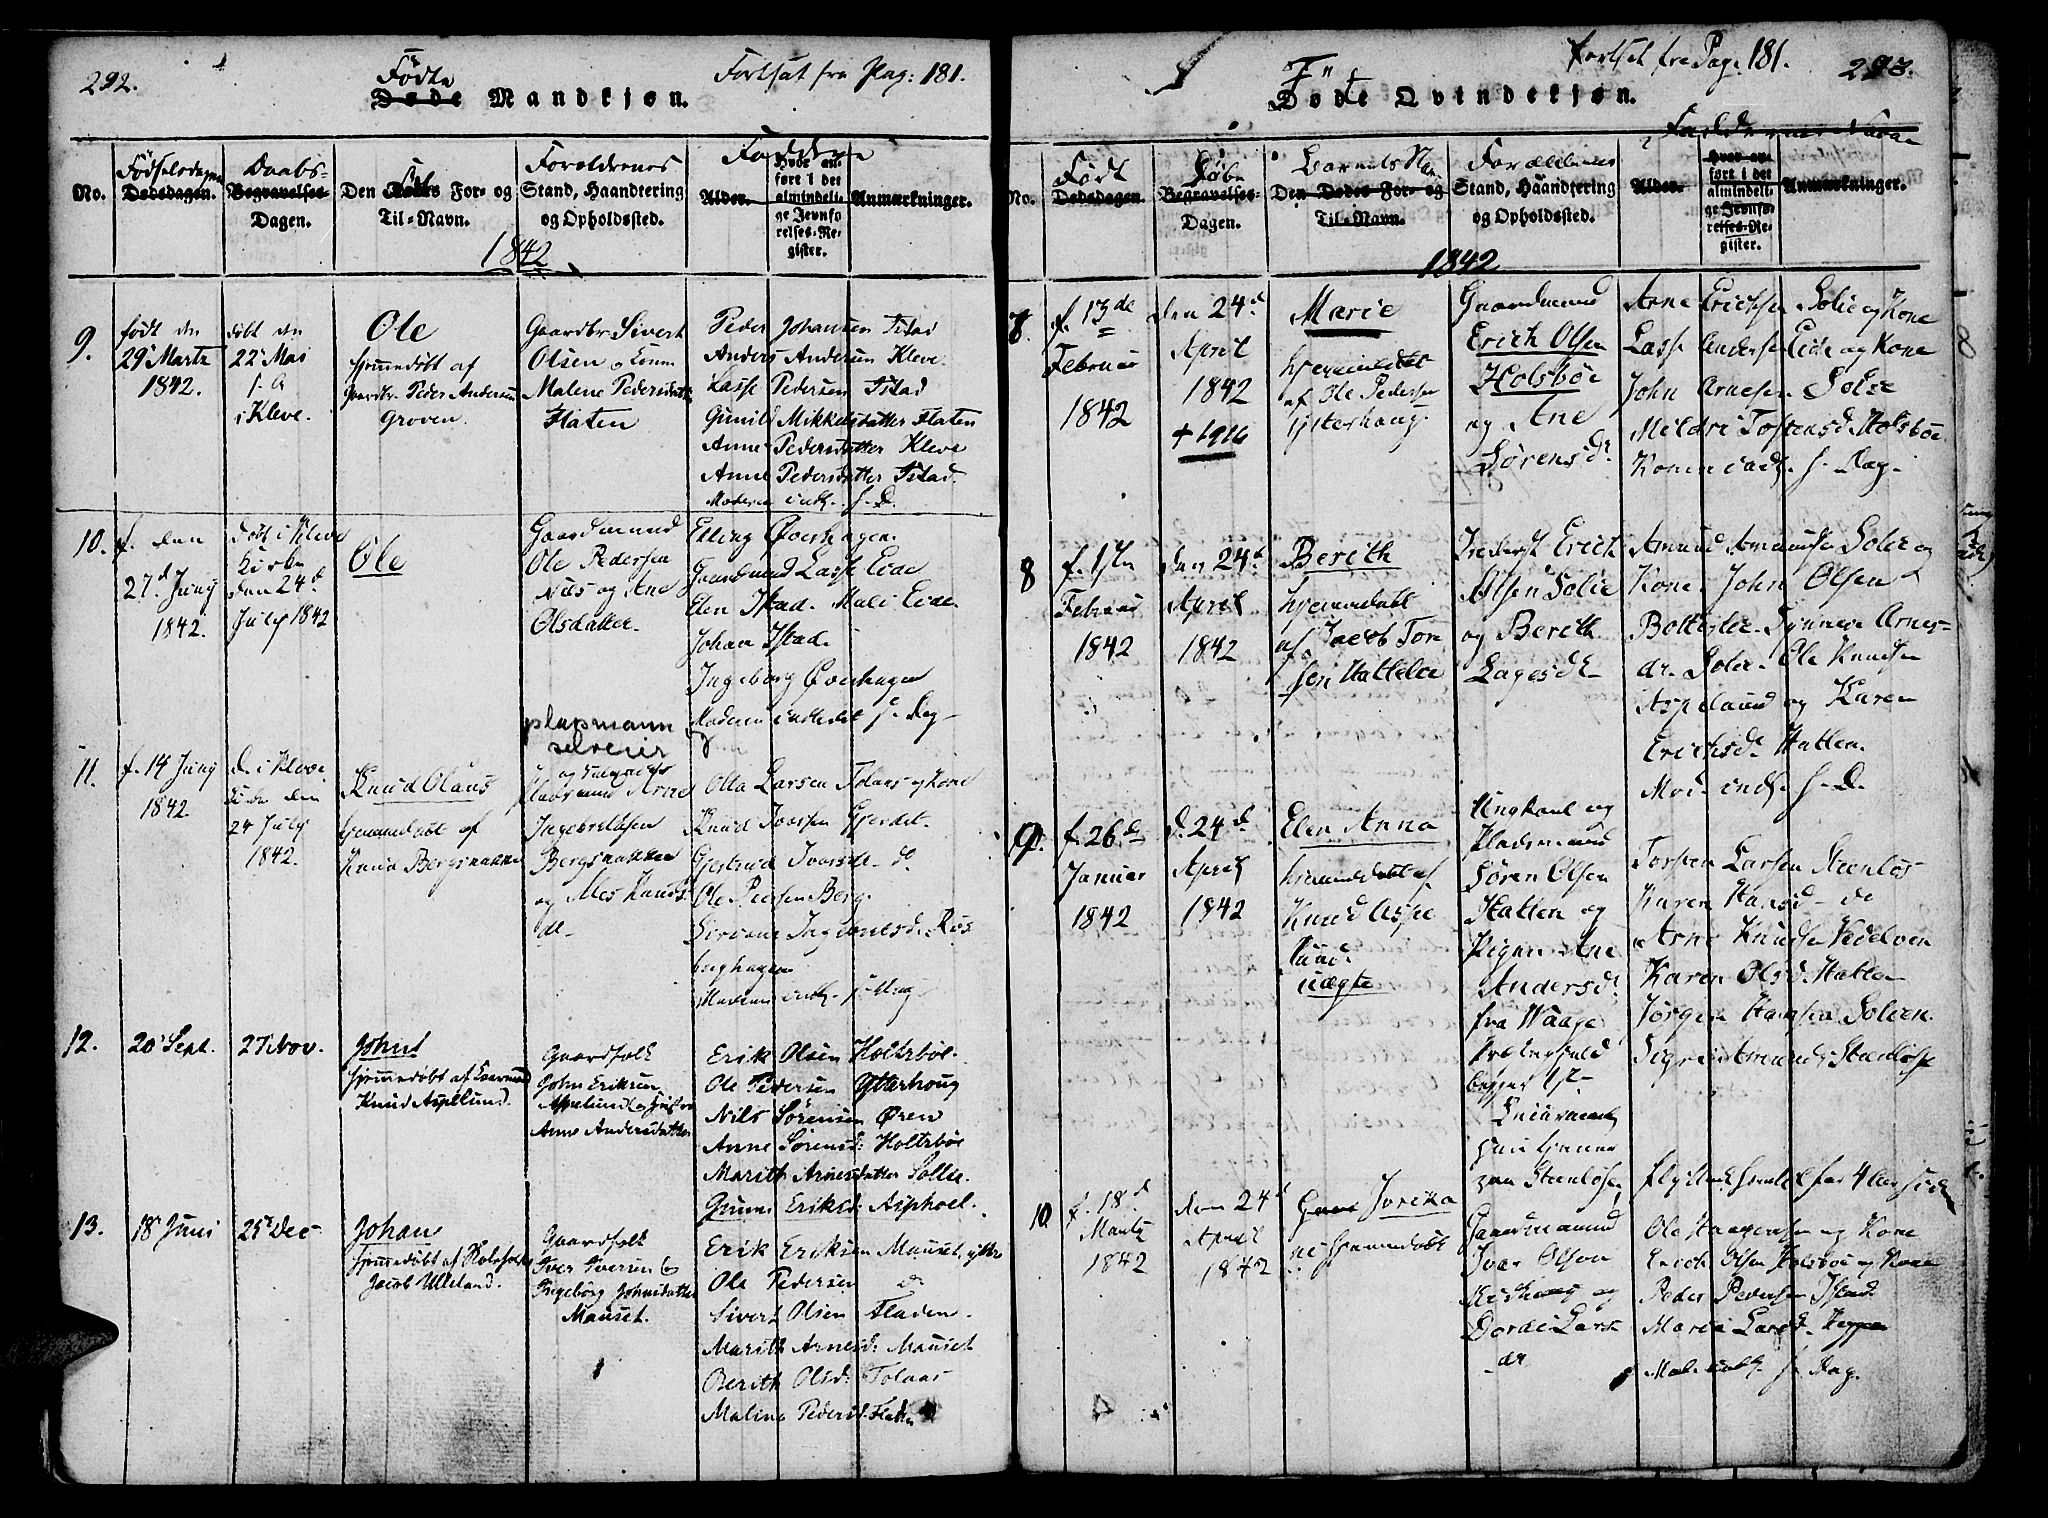 292.
Födte
Døde Mandkjøn.
Fortsat fra Pag: 181.
No.
Födselsdagen
Dødsdagen.
Daabs-
Begravelses-
Dagen.
Den For- og
Til-Navn.
Forældrenes
Stand, Haandtering
og Opholdssted.
Faddere
Alder.
Hvor an-
ført i det
almindeli-
ge Jevnfø-
relses-Re-
gister.
Anmærkninger.
1842
9.
født den
29 Martz
1842.
døbt den
22 Mai
s. a
i Kleve.
Ole
hjemmedøbt af
Gaardbr. Peder Andersen
Groven.
Gaardbr Sivert
Olsen og Kone
Malene Pedersdatter
Flaten
Peder Johansen Istad
Anders Andersen Kleve
Lasse Pedersen Istad
Gunild Mikkelsdatter Flaten
Anne Pedersdatter Kleve
Anne Pedersdatter Istad.
Moderen indl. s. D.
10.
f. den
27d Juny
1842.
Døbt i Kleve
Kirke
den 24d
July 1842
Ole
Gaardmand
Ole Pedersen
Nils og Ane
Olsdatter.
Elling Øverhagen.
Gaardmand Lasse Eide
Elen Istad. Mali Eide.
Johan Istad.
Ingeborg Øverhagen
Moderen indledet s. Dag
11.
f. 14 Juny
1842.
D. i Kleve
Kirke den
24 July
1842.
Knud Olaus
hjemmedøbt af
Knud Bergsnakken
plassmann
selveier
Arne
Ingebretsen
Bergsnakken
og Knuds
dr.
Ole Larsen Tolaas og Kone
Knud Iversen Gjerdet.
Gjertrud Iversdr. do
Ole Pedersen Berg.
Moderen indl. s. Dag
12.
20 Sept.
27 Nov.
John
hjemmedøbt af
Knud Aspelund.
Gaardfolk
John Eriksen
Aspelund og Hustru
Anne Andersdatter
Erik Olsen Holtsbøe.
Ole Pedersen Ytterhoug
Nils Sørensen Øren
Anne Sørensd: Holtsbøe
Marith Arnesdatter Sollie.
Eriksd: Asphoel.
13.
18 Juni
25 Dec
Johan
hjemmedøbt af Skoleholder
Jacob Ulleland.
Gaardfolk
Iver Iversen og
Ingeborg Johnsdatter
Mauset.
Erik Eriksen Mauset, ytre
Ole Pedersen do
Sivert Olsen Fladen.
Marith Arnesd: Mauset
Berith Olsd: Tolaas
Malina Pedersd. Fladen
Fortsat fra Pag. 181.
293.
Föte
Døde Qvindekjøn.
No.
Født
Dødsdagen.
Døbe
Begravelses-
Dagen.
Barnets Navn
Den Dødes For- og
Til-Navn.
Forældrenes
Stand, Haandtering
og Opholdssted.
Faddernes Navne
Alder.
Hvor an-
ført i det
almindeli-
ge Jevnfø-
relses-Re-
gister.
Anmærkninger.
1842
8.
f. 13de
Februar
1842
den 24d
April
1842
+ 1916
Marie
hjemmedøbt
af Ole Pedersen
Ytterhoug
Gaardmand
Erich Olsen
Holsbøe
og Ane
Sørensdr.
Arne Erichsen Solie og Kone
Lasse Andersen Eide og Kone
John Arnesen Solie
Mildri Tostensd. Holsbøe
Konen indl. s. Dag.
8
f. 1ste
Februar
1842
den 24d
April
1842
Berith
hjemmedøbt
af Jacob Tor
sen Hattelie
Inderst Erich
Olsen Solie
og Berith
Lagesdr
Amund Amundsen Solie og
Kone. John Olsen
Botteslie. Synneve Arnes-
dr. Solie. Ole Knudsen
Aspelund og Karen
Erichsdr. Hatlen.
Mod. indl. s. D.
9.
f. 26de
Januar
1842
d. 24d.
April
1842
Elen Anna
hjemmedøbt af
Knud Aspe
lund.
uægte
Ungkarl og
Pladsmand
Søren Olsen
Hatlen og
Pigen Ane
Andersdr
fra Waage
begges 1ste
paa Steenløse,
Torsten Larsen Steenløs
Karen Hansd do
Arne Knudsen Vedelven
Karen Olsd. Hatlen
Jørgen Hansen Solien.
Sigrid Amundsd. Steenløse
10
f. 18d
Martz
1842
den 24d
April
1842
Jorika
hjemmedøbt
Gaardmand
Ivar Olsen
og
Dordi Lars
dr
Ole Haagensen og Kone
Erich Olsen Holsbøe og Kone
Peder Pedersen Istad.
Marie Larsd.
Mod. indl. s. Dag.